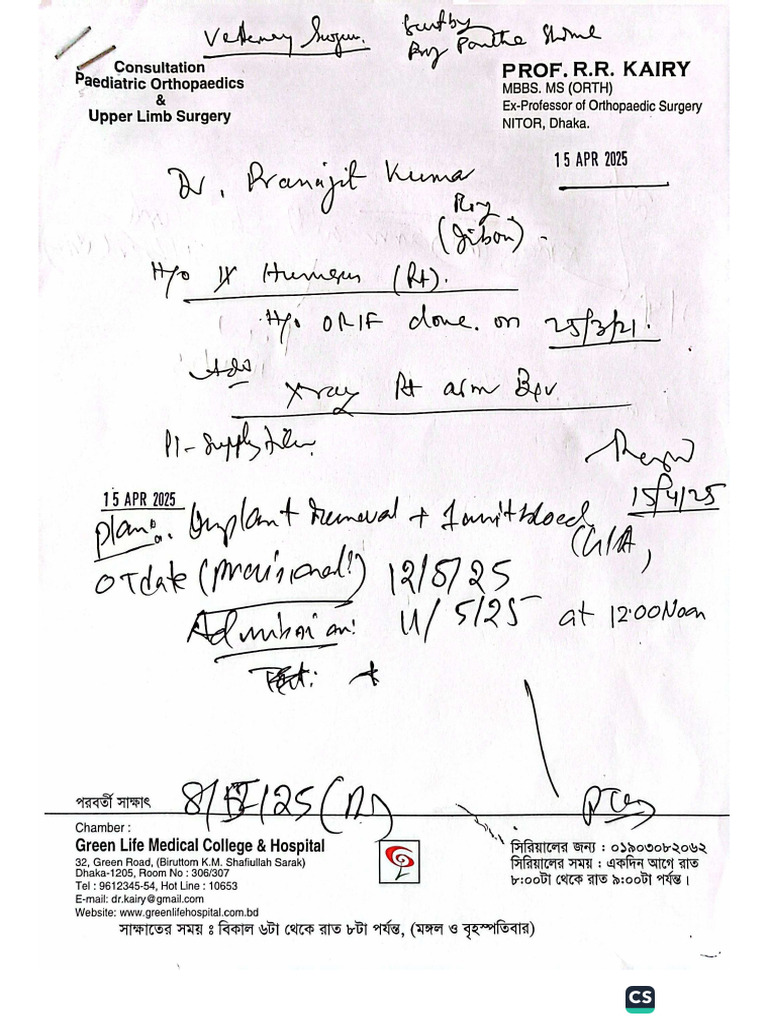 Sent by
Consultation
Paediatric Orthopaedics
&
Upper Limb Surgery
PROF. R.R. KAIRY
MBBS. MS (ORTH)
Ex-Professor of Orthopaedic Surgery
NITOR, Dhaka.
15 APR 2025
Dr. Pranajit Kumar
Roy
(Jibon)
H/o # Humerus (Rt).
H/o ORIF done. on 25/3/21.
Adv
Xray Rt arm B/v
15/4/25
15 APR 2025
Plan: Implant Removal + 1 unit blood
(G/A)
OT date (provisional) 12/5/25
Admission: 11/5/25 at 12:00 Noon
পরবর্তী সাক্ষাৎ
Chamber :
Green Life Medical College & Hospital
32, Green Road, (Biruttom K.M. Shafiullah Sarak)
Dhaka-1205, Room No : 306/307
Tel : 9612345-54, Hot Line : 10653
E-mail: dr.kairy@gmail.com
Website: www.greenlifehospital.com.bd
সিরিয়ালের জন্য : ০১৯০৩০৮২০৬২
সিরিয়ালের সময় : একদিন আগে রাত
৮:০০টা থেকে রাত ৯:০০টা পর্যন্ত।
সাক্ষাতের সময় ঃ বিকাল ৬টা থেকে রাত ৮টা পর্যন্ত, (মঙ্গল ও বৃহস্পতিবার)
CS